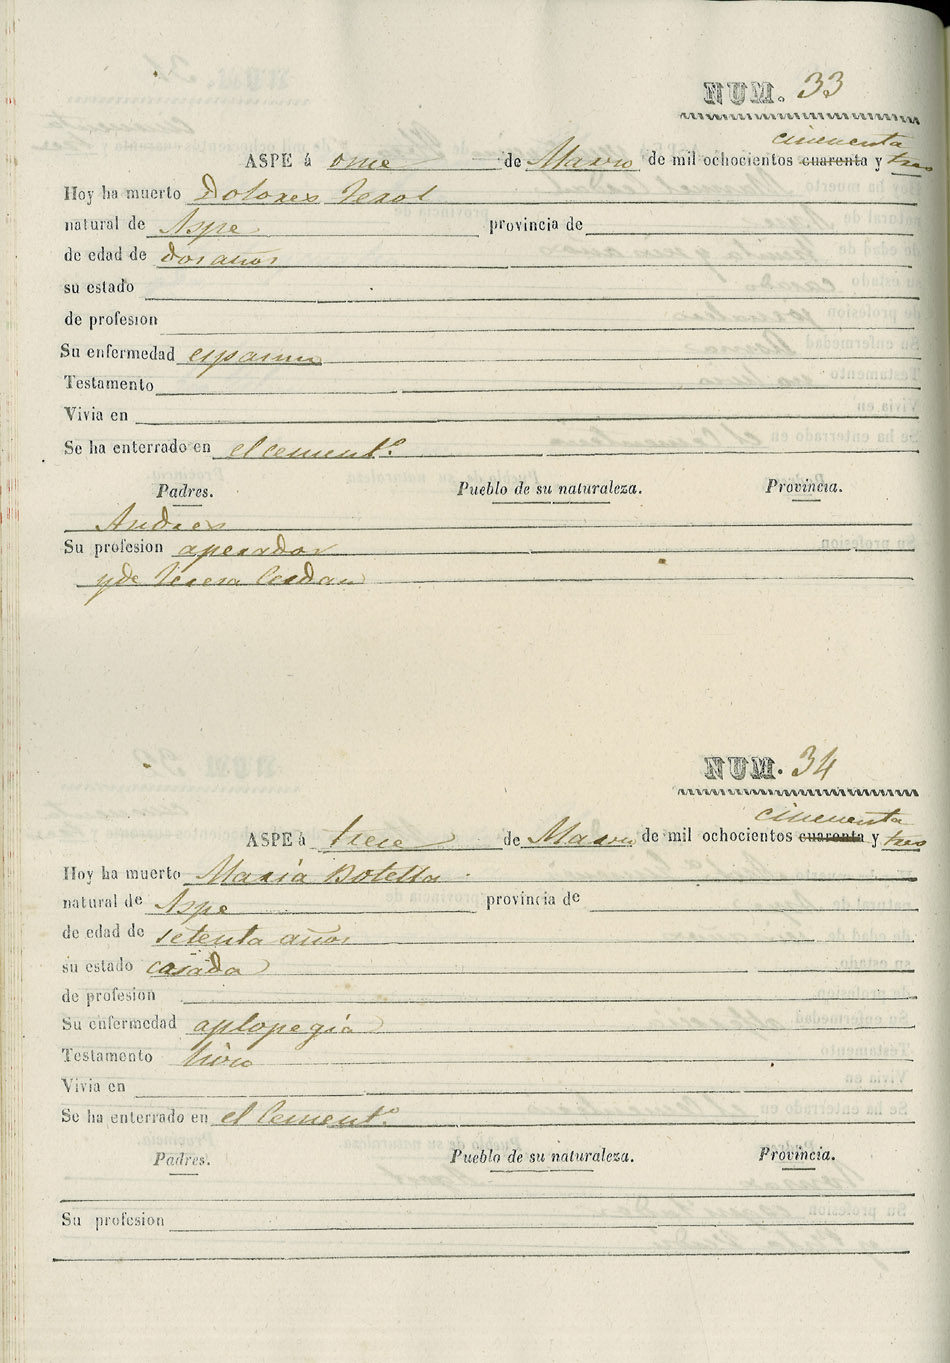 NUM. 33
cincuenta
ASPE á once de Marzo de mil ochocientos cuarenta y tres
Hoy ha muerto Dolores Terol
natural de Aspe provincia de
de edad de dos años
su estado
de profesion
Su enfermedad espasmo
Testamento
Vivia en
Se ha enterrado en el cement.º
Padres. Pueblo de su naturaleza. Provincia.
Andres
Su profesion aperador
y de Teresa Cerdan
NUM. 34
cincuenta
ASPE á trece de Marzo de mil ochocientos cuarenta y tres
Hoy ha muerto Maria Botella
natural de Aspe provincia de
de edad de setenta años
su estado casada
de profesion
Su enfermedad aplopegia
Testamento hizo
Vivia en
Se ha enterrado en el Cement.º
Padres. Pueblo de su naturaleza. Provincia.
Su profesion